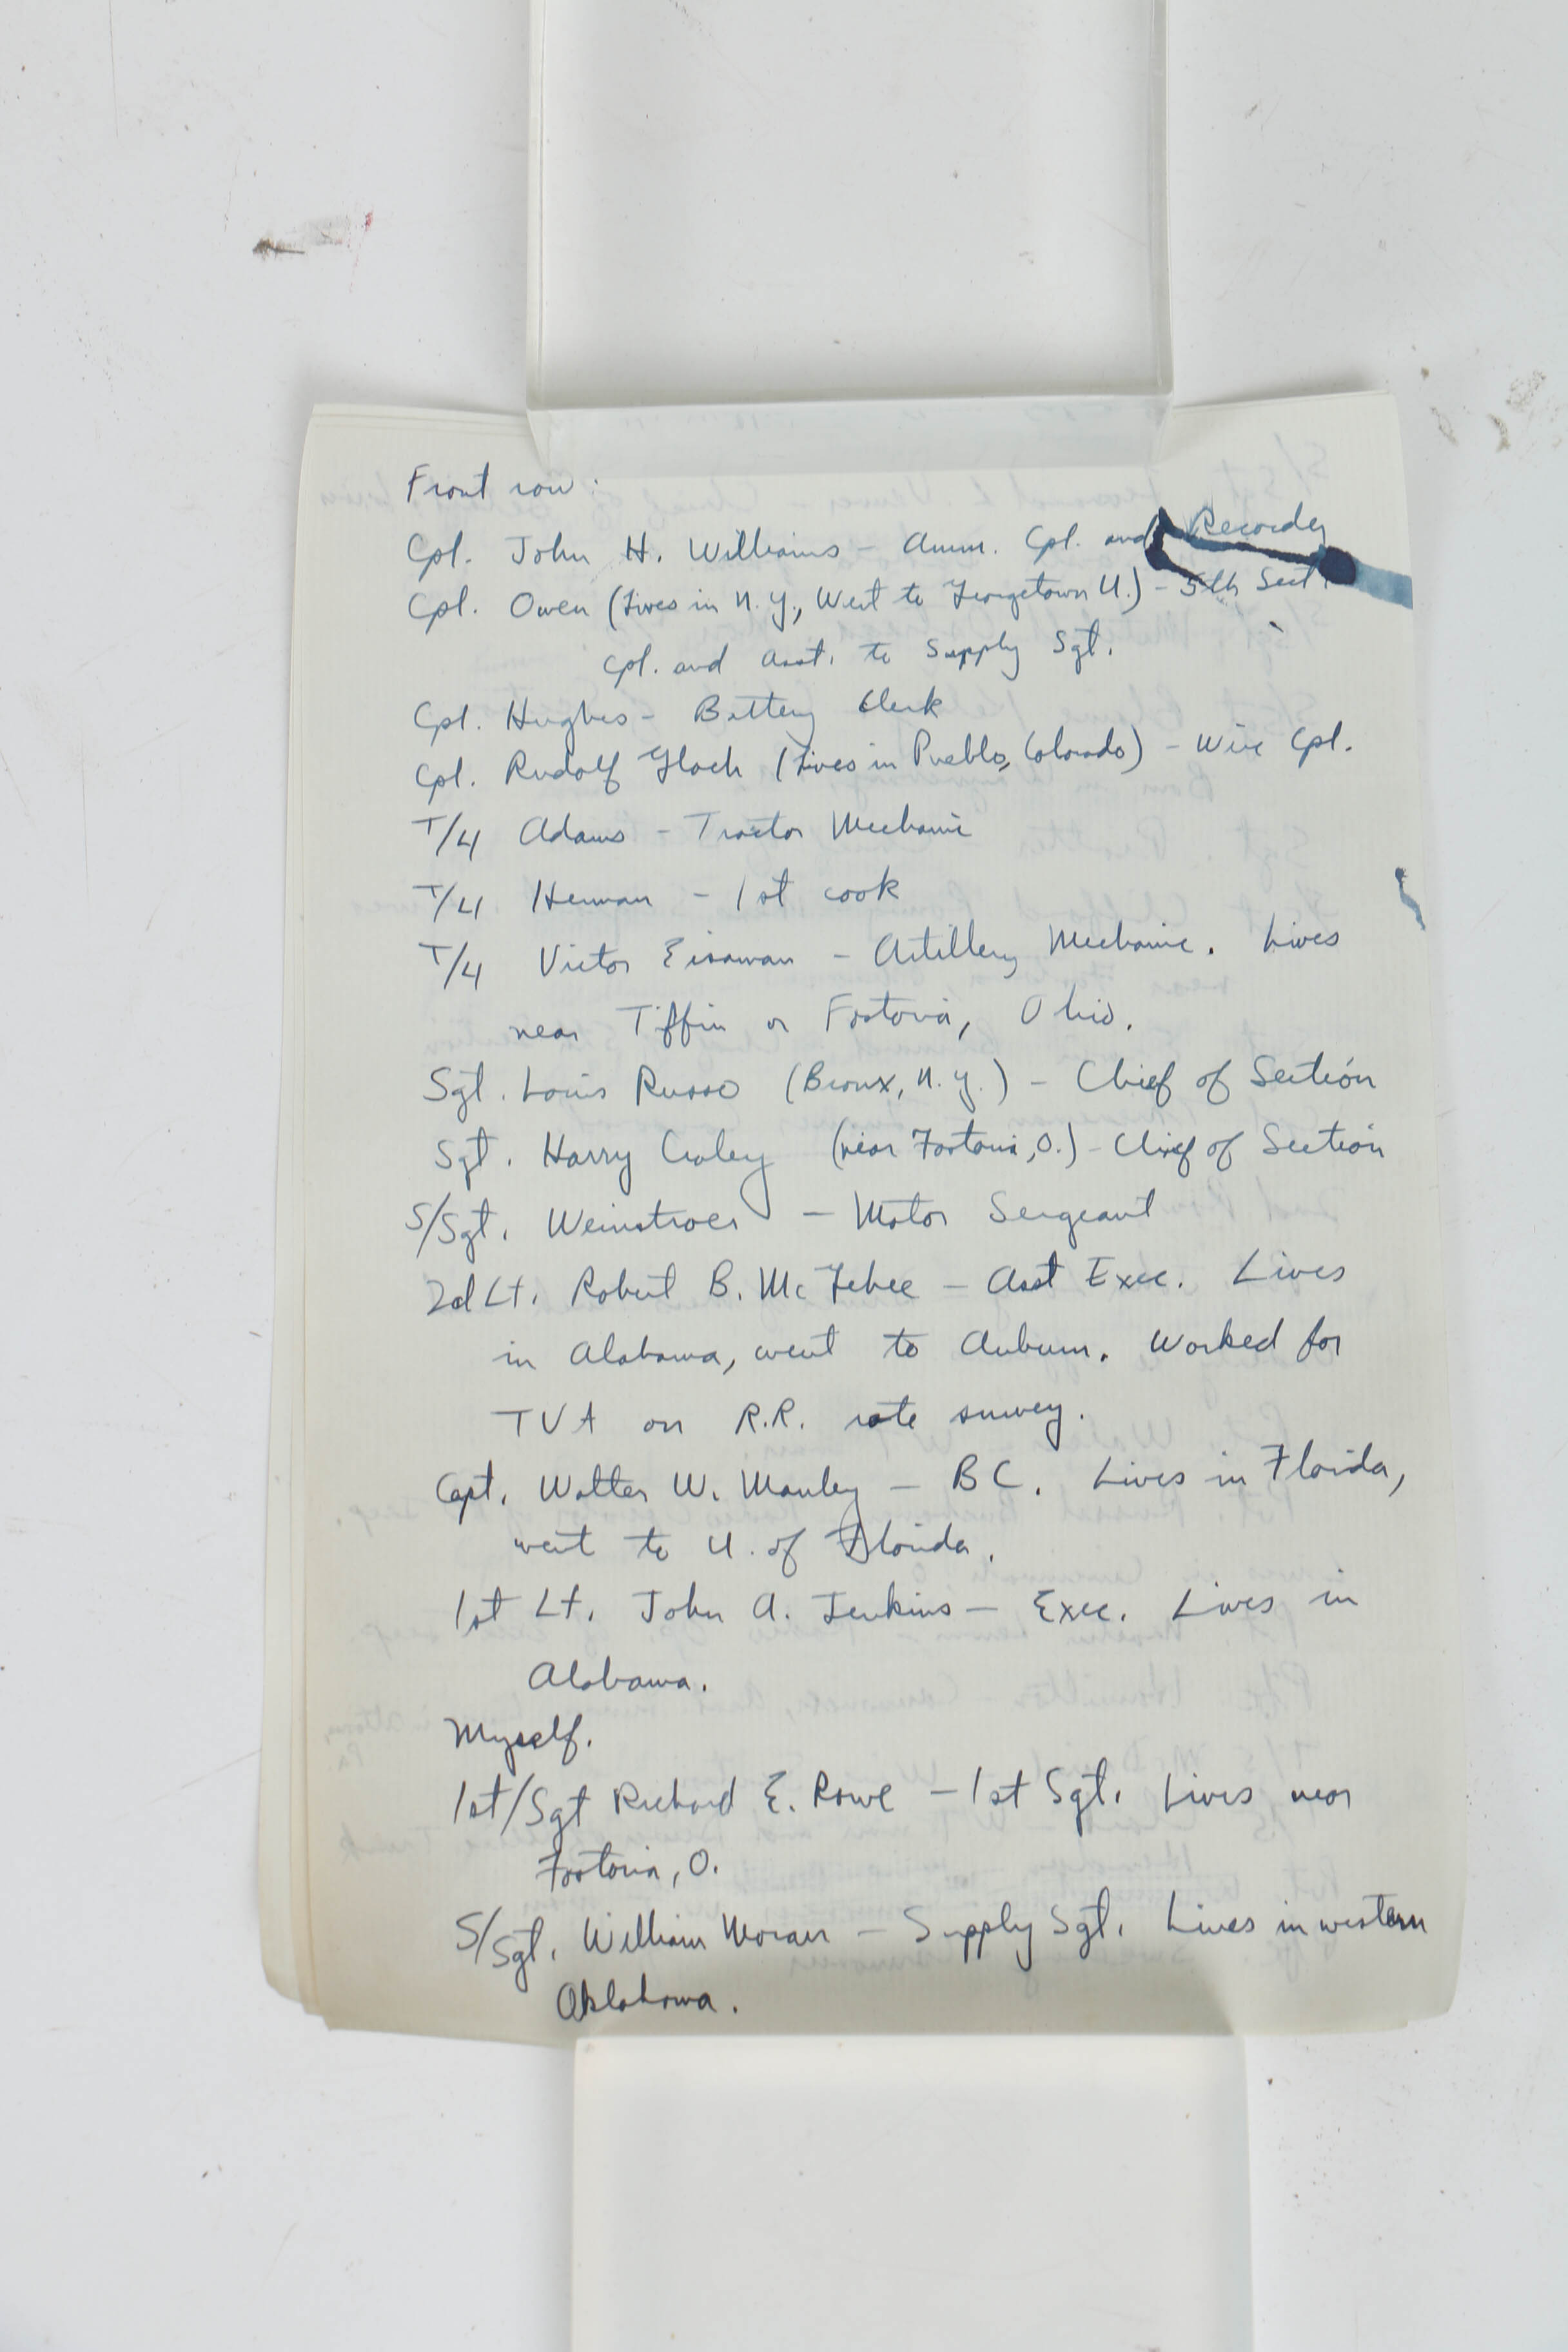 Front row:
Cpl. John H. Williams - Amm. Cpl. and Recorder
Cpl. Owen (Lives in N.Y., Went to Georgetown U.) - 5th Sect.
Cpl. and Asst. to Supply Sgt.
Cpl. Hughes - Battery Clerk
Cpl. Rudolf (Lives in Pueblo, Colorado) - Wire Cpl.
T/4 Adams - Tractor Mechanic
T/4 Herman - 1st cook
T/4 Victor Eisaman - Artillery Mechanic. Lives
near Tiffin or Fostoria, Ohio.
Sgt. Louis Russo (Bronx, N.Y.) - Chief of Section
Sgt. Harry (near Fostoria, O.) - Chief of Section
S/Sgt. - Motor Sergeant
2d Lt. Robert B. McGehee - Asst Exec. Lives
in Alabama, went to Auburn. Worked for
TVA on R.R. rate survey.
Capt. Walter W. Manley - BC. Lives in Florida,
went to U. of Florida.
1st Lt. John A. Jenkins - Exec. Lives in
Alabama.
Myself.
1st/Sgt Richard E. Rowe - 1st Sgt. Lives near
Fostoria, O.
S/Sgt. William Moran - Supply Sgt. Lives in western
Oklahoma.